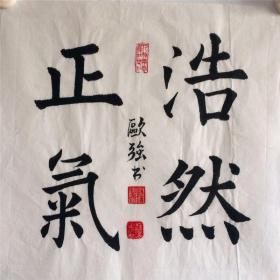 浩然
正氣
歐強书